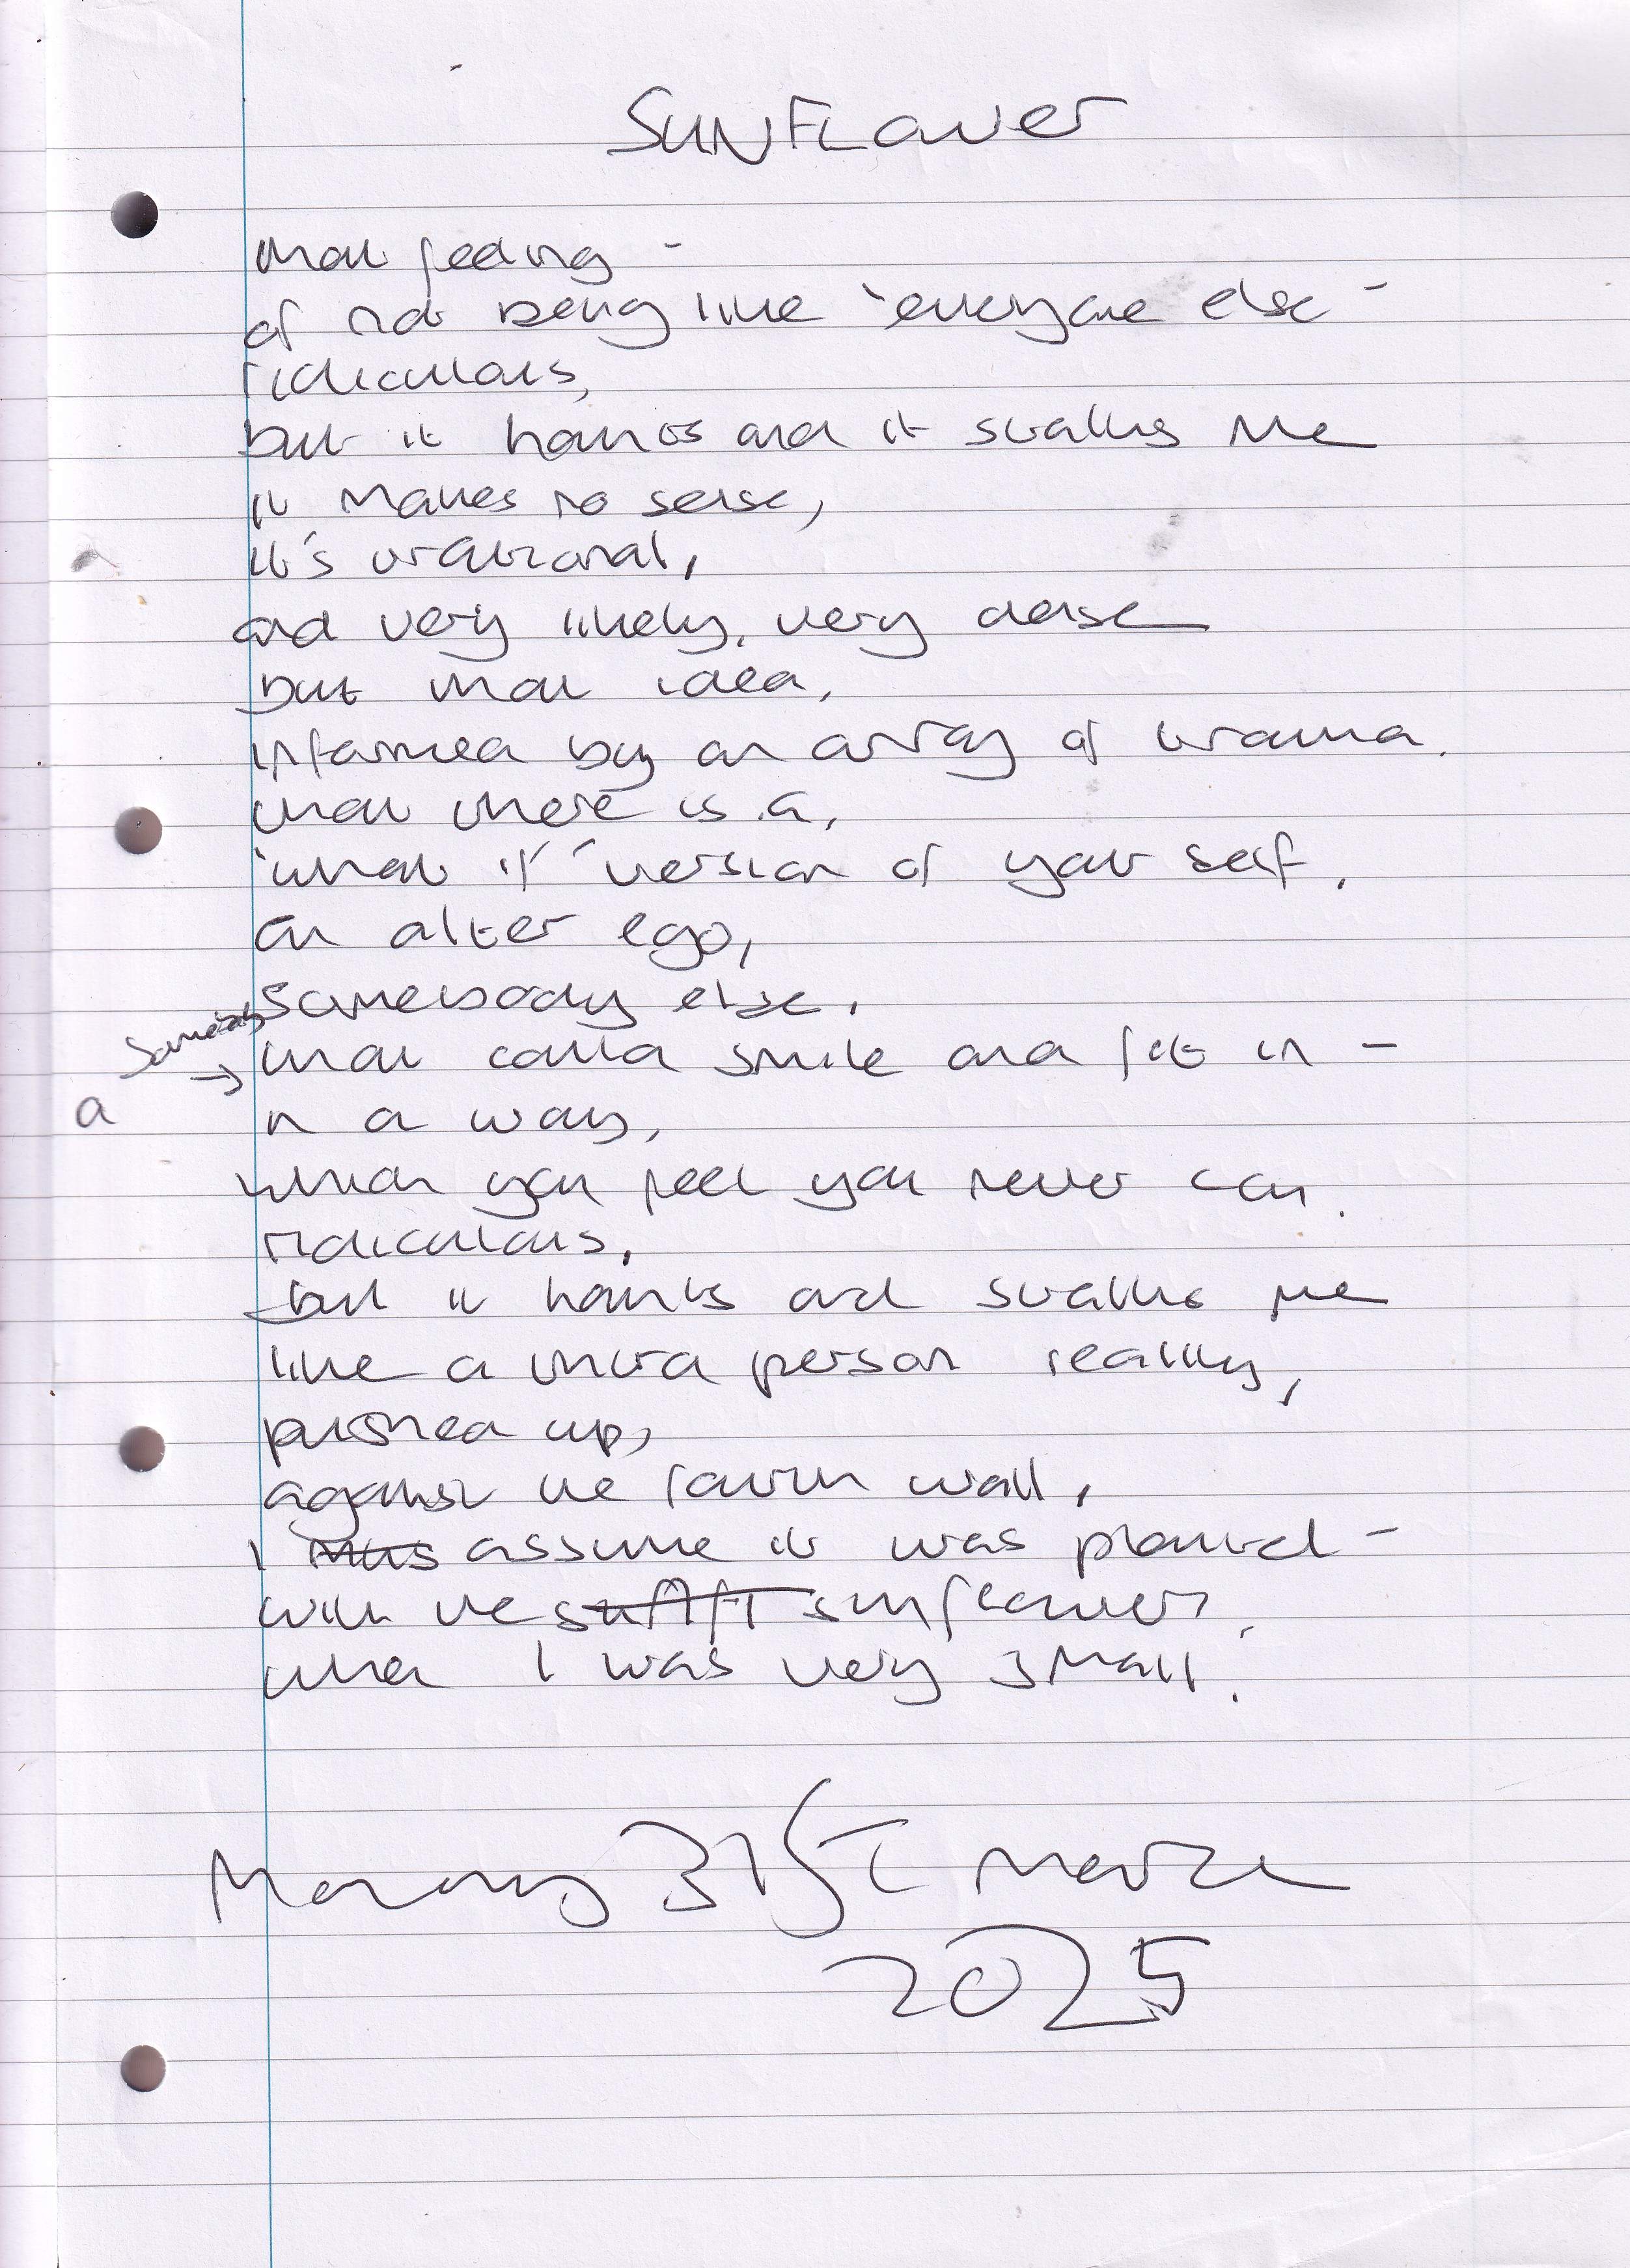 SUNFLOWER
that feeling -
of not being like 'everyone else -
ridiculous,
but it haunts and it stalks me
it makes no sense,
it's irrational,
and very likely, very dense
but that idea,
informed by an array of trauma.
that there is a,
'what if' version of your self,
an alter ego,
somebody else.
somebody
→ that could smile and fit in -
a
in a way,
which you feel you never can.
ridiculous,
but it haunts and stalks me
like a third person reality,
pushed up,
against the fourth wall,
I assume it was planted -
with the sunflower,
when I was very small.
Monday 31st March
2025